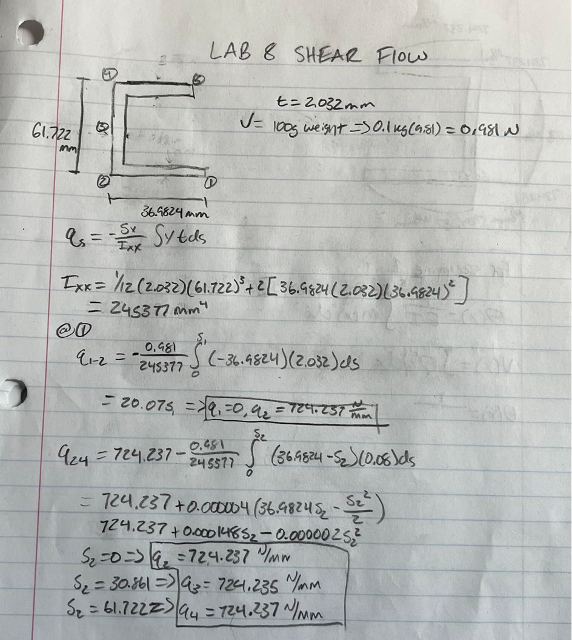 LAB 8 SHEAR FLOW
④ ⑤
t = 2.032mm
V = 100g weight => 0.1kg(9.81) = 0.981 N
61.722 mm
③
② ①
36.9824 mm
qs = -Sy/Ixx ∫ytds
Ixx = 1/12 (2.032)(61.722)³ + 2[36.9824(2.032)(36.9824)²]
= 245377 mm⁴
@①
q1-2 = -0.981/245377 ∫₀^S₁ (-36.9824)(2.032)ds
= 20.07S, => q1=0, q2 = 724.237 N/mm
q24 = 724.237 - 0.981/245577 ∫₀^S₂ (36.9824-S2)(0.08)ds
= 724.237 + 0.000004 (36.9824S2 - S2²/2)
724.237 + 0.000148S2 - 0.000002S2²
S2=0 => q2 = 724.237 N/mm
S2 = 30.861 => q3 = 724.235 N/mm
S2 = 61.722 => q4 = 724.237 N/mm